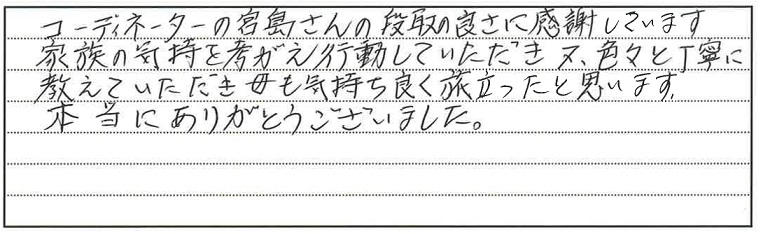 コーディネーターの宮島さんの段取の良さに感謝しています
家族の気持を考がえ行動していただき又、色々と丁寧に
教えていただき母も気持ち良く旅立ったと思います。
本当にありがとうございました。